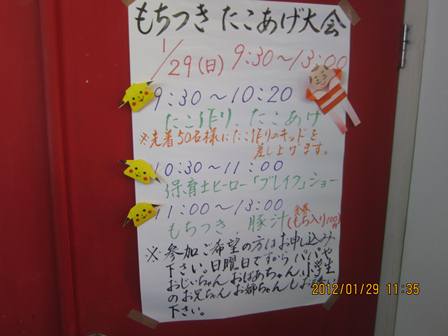 もちつき たこあげ大会
1/29(日) 9:30~13:00
9:30~10:20
たこ作り、たこあげ
※先着50名様にたこ作りのキッドを
差し上げます。
10:30~11:00
保育士ヒーロー「ブレイブ」ショー
11:00~13:00
もちつき 豚汁(もち入り100円)
※参加ご希望の方はお申し込み
下さい。日曜日ですからパパや
おじいちゃんおばあちゃん小学生
のお兄ちゃんお姉ちゃん
2012/01/29 11:35